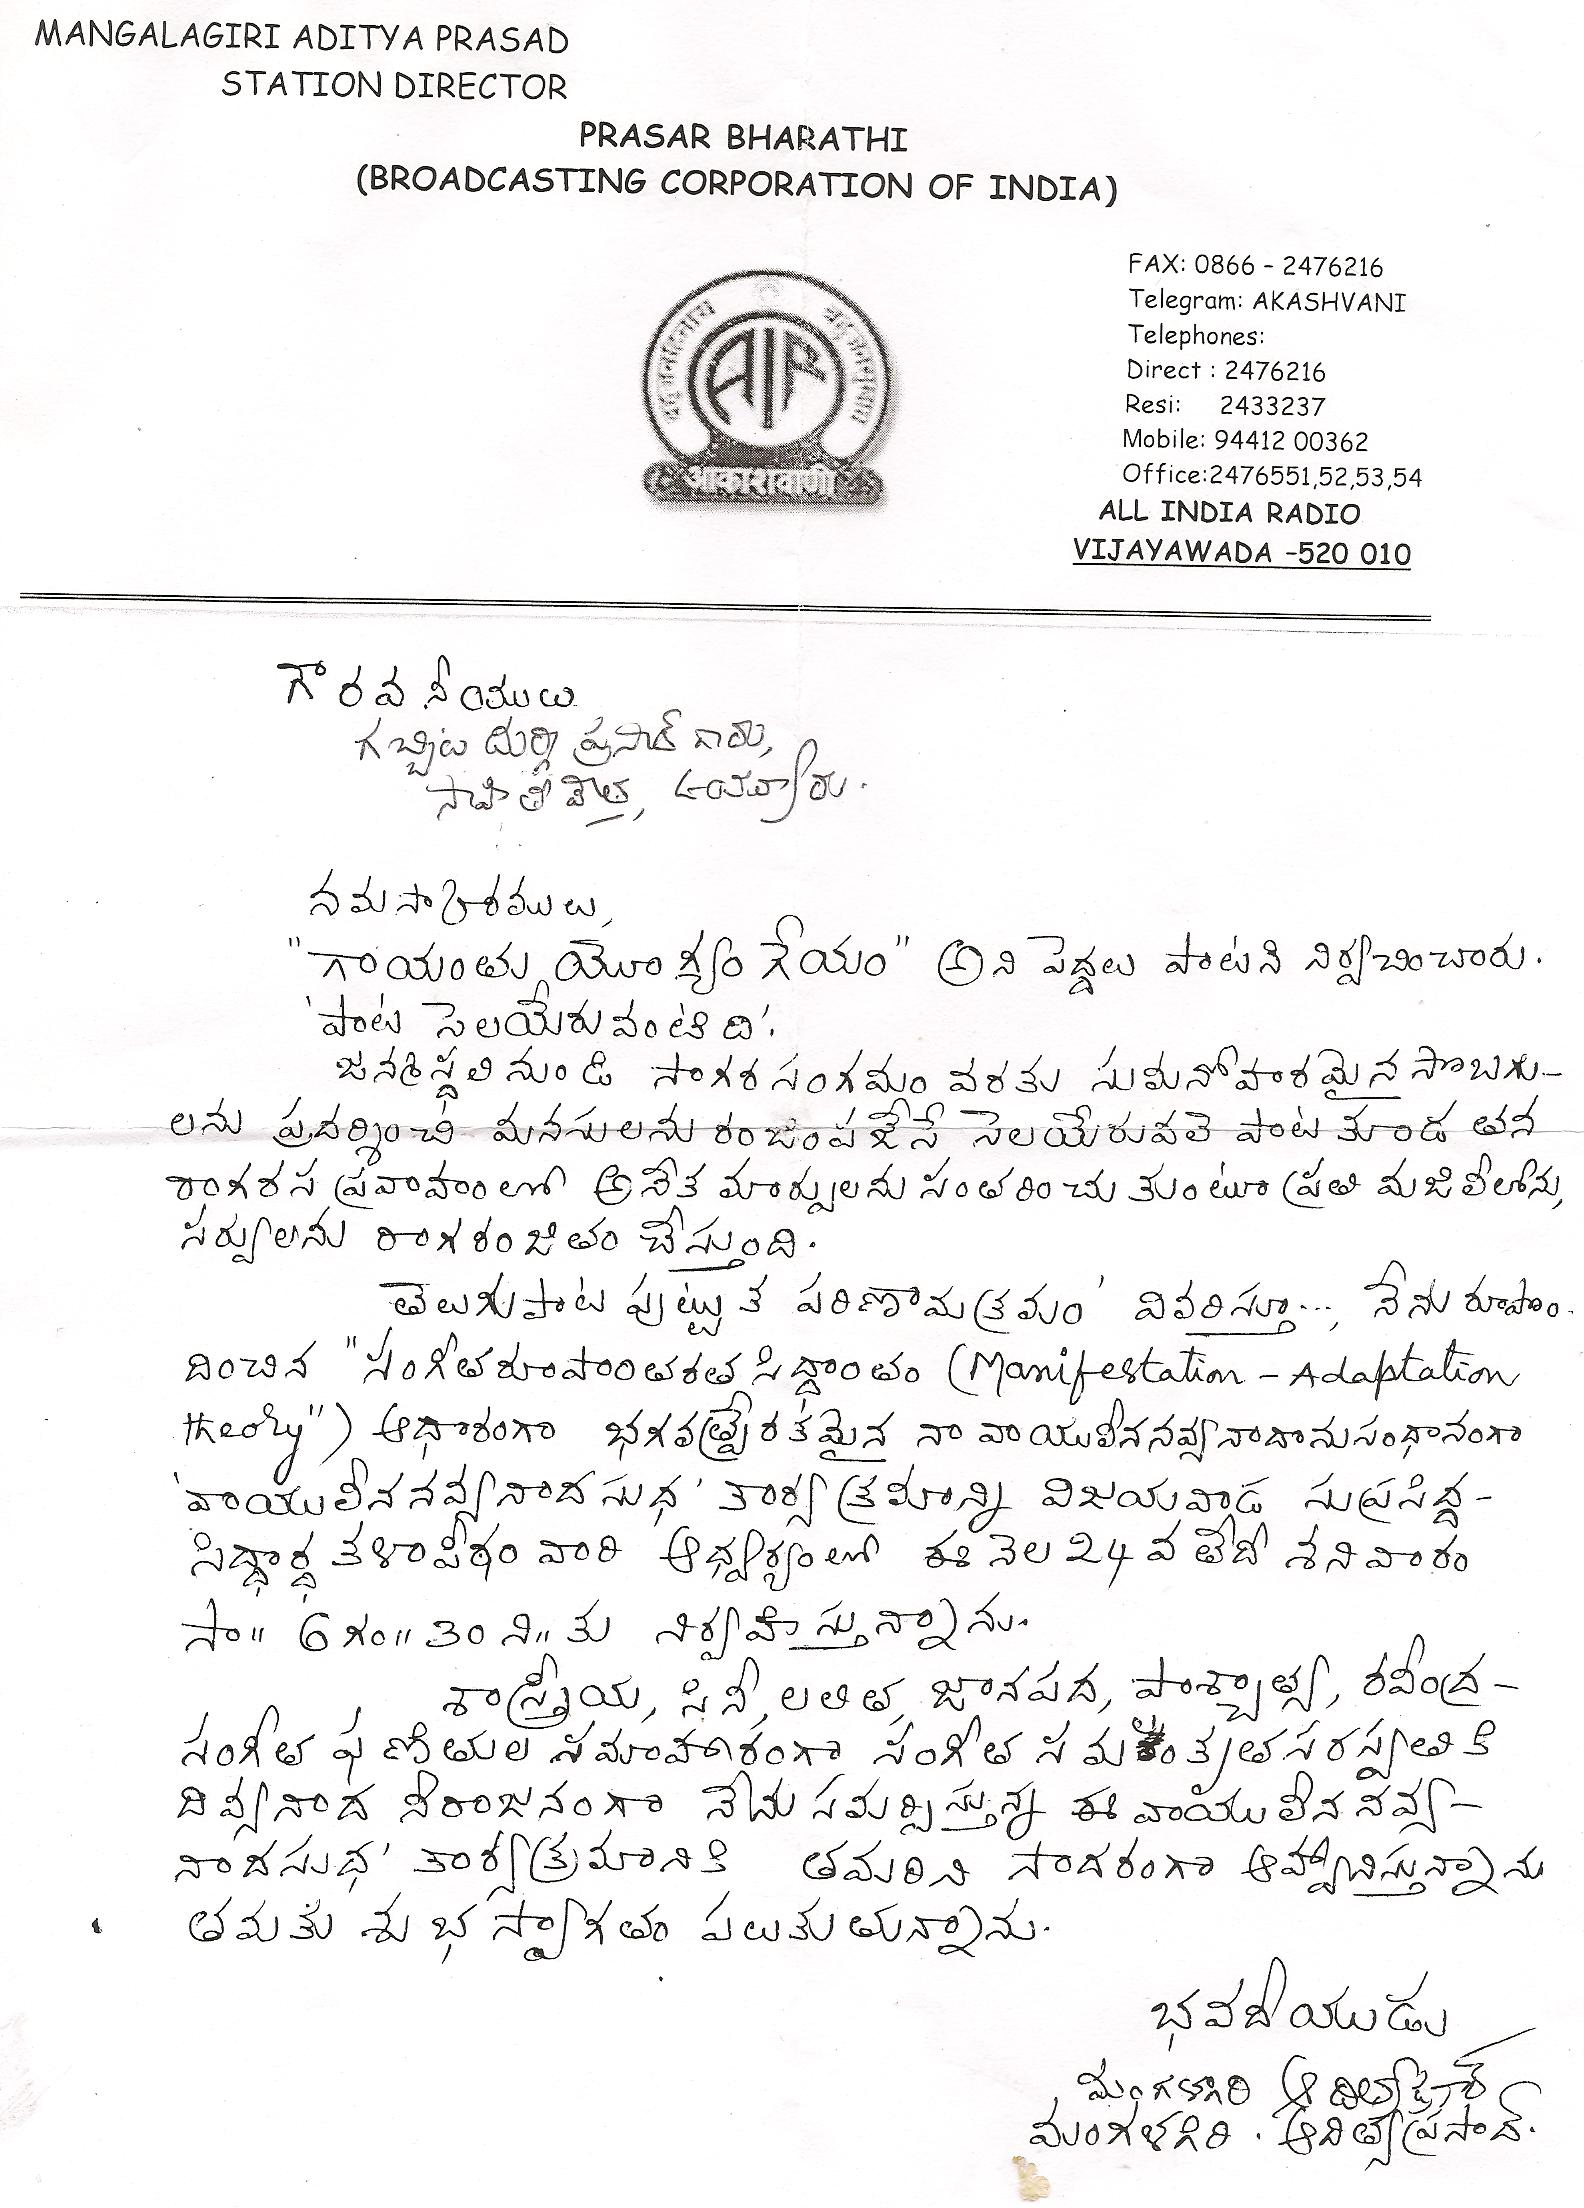 MANGALAGIRI ADITYA PRASAD
STATION DIRECTOR
PRASAR BHARATHI
(BROADCASTING CORPORATION OF INDIA)
FAX: 0866 - 2476216
Telegram: AKASHVANI
Telephones:
Direct : 2476216
Resi: 2433237
Mobile: 94412 00362
Office:2476551,52,53,54
आकाशवाणी
ALL INDIA RADIO
VIJAYAWADA -520 010
గౌరవనీయులు
గబ్బిట దుర్గా ప్రసాద్ గారు,
సాహితీవేత్త, ఉయ్యూరు.
నమస్కారములు,
"గాయంతు యోగ్యం గేయం" అని పెద్దలు పాటని నిర్వచించారు.
'పాట సెలయేరువంటిది'.
జన్మస్థలి నుండి సాగర సంగమం వరకు సుమనోహరమైన సొబగు-
లను ప్రదర్శించి మనసులను రంజింపజేసే సెలయేరువలె పాట కూడ తన
రాగరస ప్రవాహంలో అనేక మార్పులను సంతరించుకుంటూ ప్రతి మజిలీలోను,
సర్వులను రాగరంజితం చేస్తుంది.
తెలుగుపాట పుట్టుక పరిణామక్రమం' వివరిస్తూ..., నేను రూపొం-
దించిన "సంగీతరూపాంతరకత సిద్ధాంతం (Manifestation - Adaptation
theory") ఆధారంగా భగవత్ప్రేరకమైన నా వాయులీననవ్యనాదానుసంధానంగా
'వాయులీననవ్యనాదసుధ' కార్యక్రమాన్ని విజయవాడ సుప్రసిద్ధ-
సిద్ధార్థ కళాపీఠం వారి ఆధ్వర్యంలో ఈ నెల 24 వ తేదీ శనివారం
సా॥ 6 గం॥ 30 ని॥ కు నిర్వహిస్తున్నాను.
శాస్త్రీయ, సినీ, లలిత, జానపద, పాశ్చాత్య, రవీంద్ర-
సంగీత ఫణితుల సమాహారంగా సంగీత సరస్వతికి
దివ్యనాద నీరాజనంగా నేను సమర్పిస్తున్న ఈ వాయులీన నవ్య-
నాదసుధ' కార్యక్రమానికి తమరిని సాదరంగా ఆహ్వానిస్తున్నాను
తమకు శుభ స్వాగతం పలుకుతున్నాను.
భవదీయుడు
మంగళగిరి ఆదిత్యప్రసాద్
మంగళగిరి . ఆదిత్యప్రసాద్.